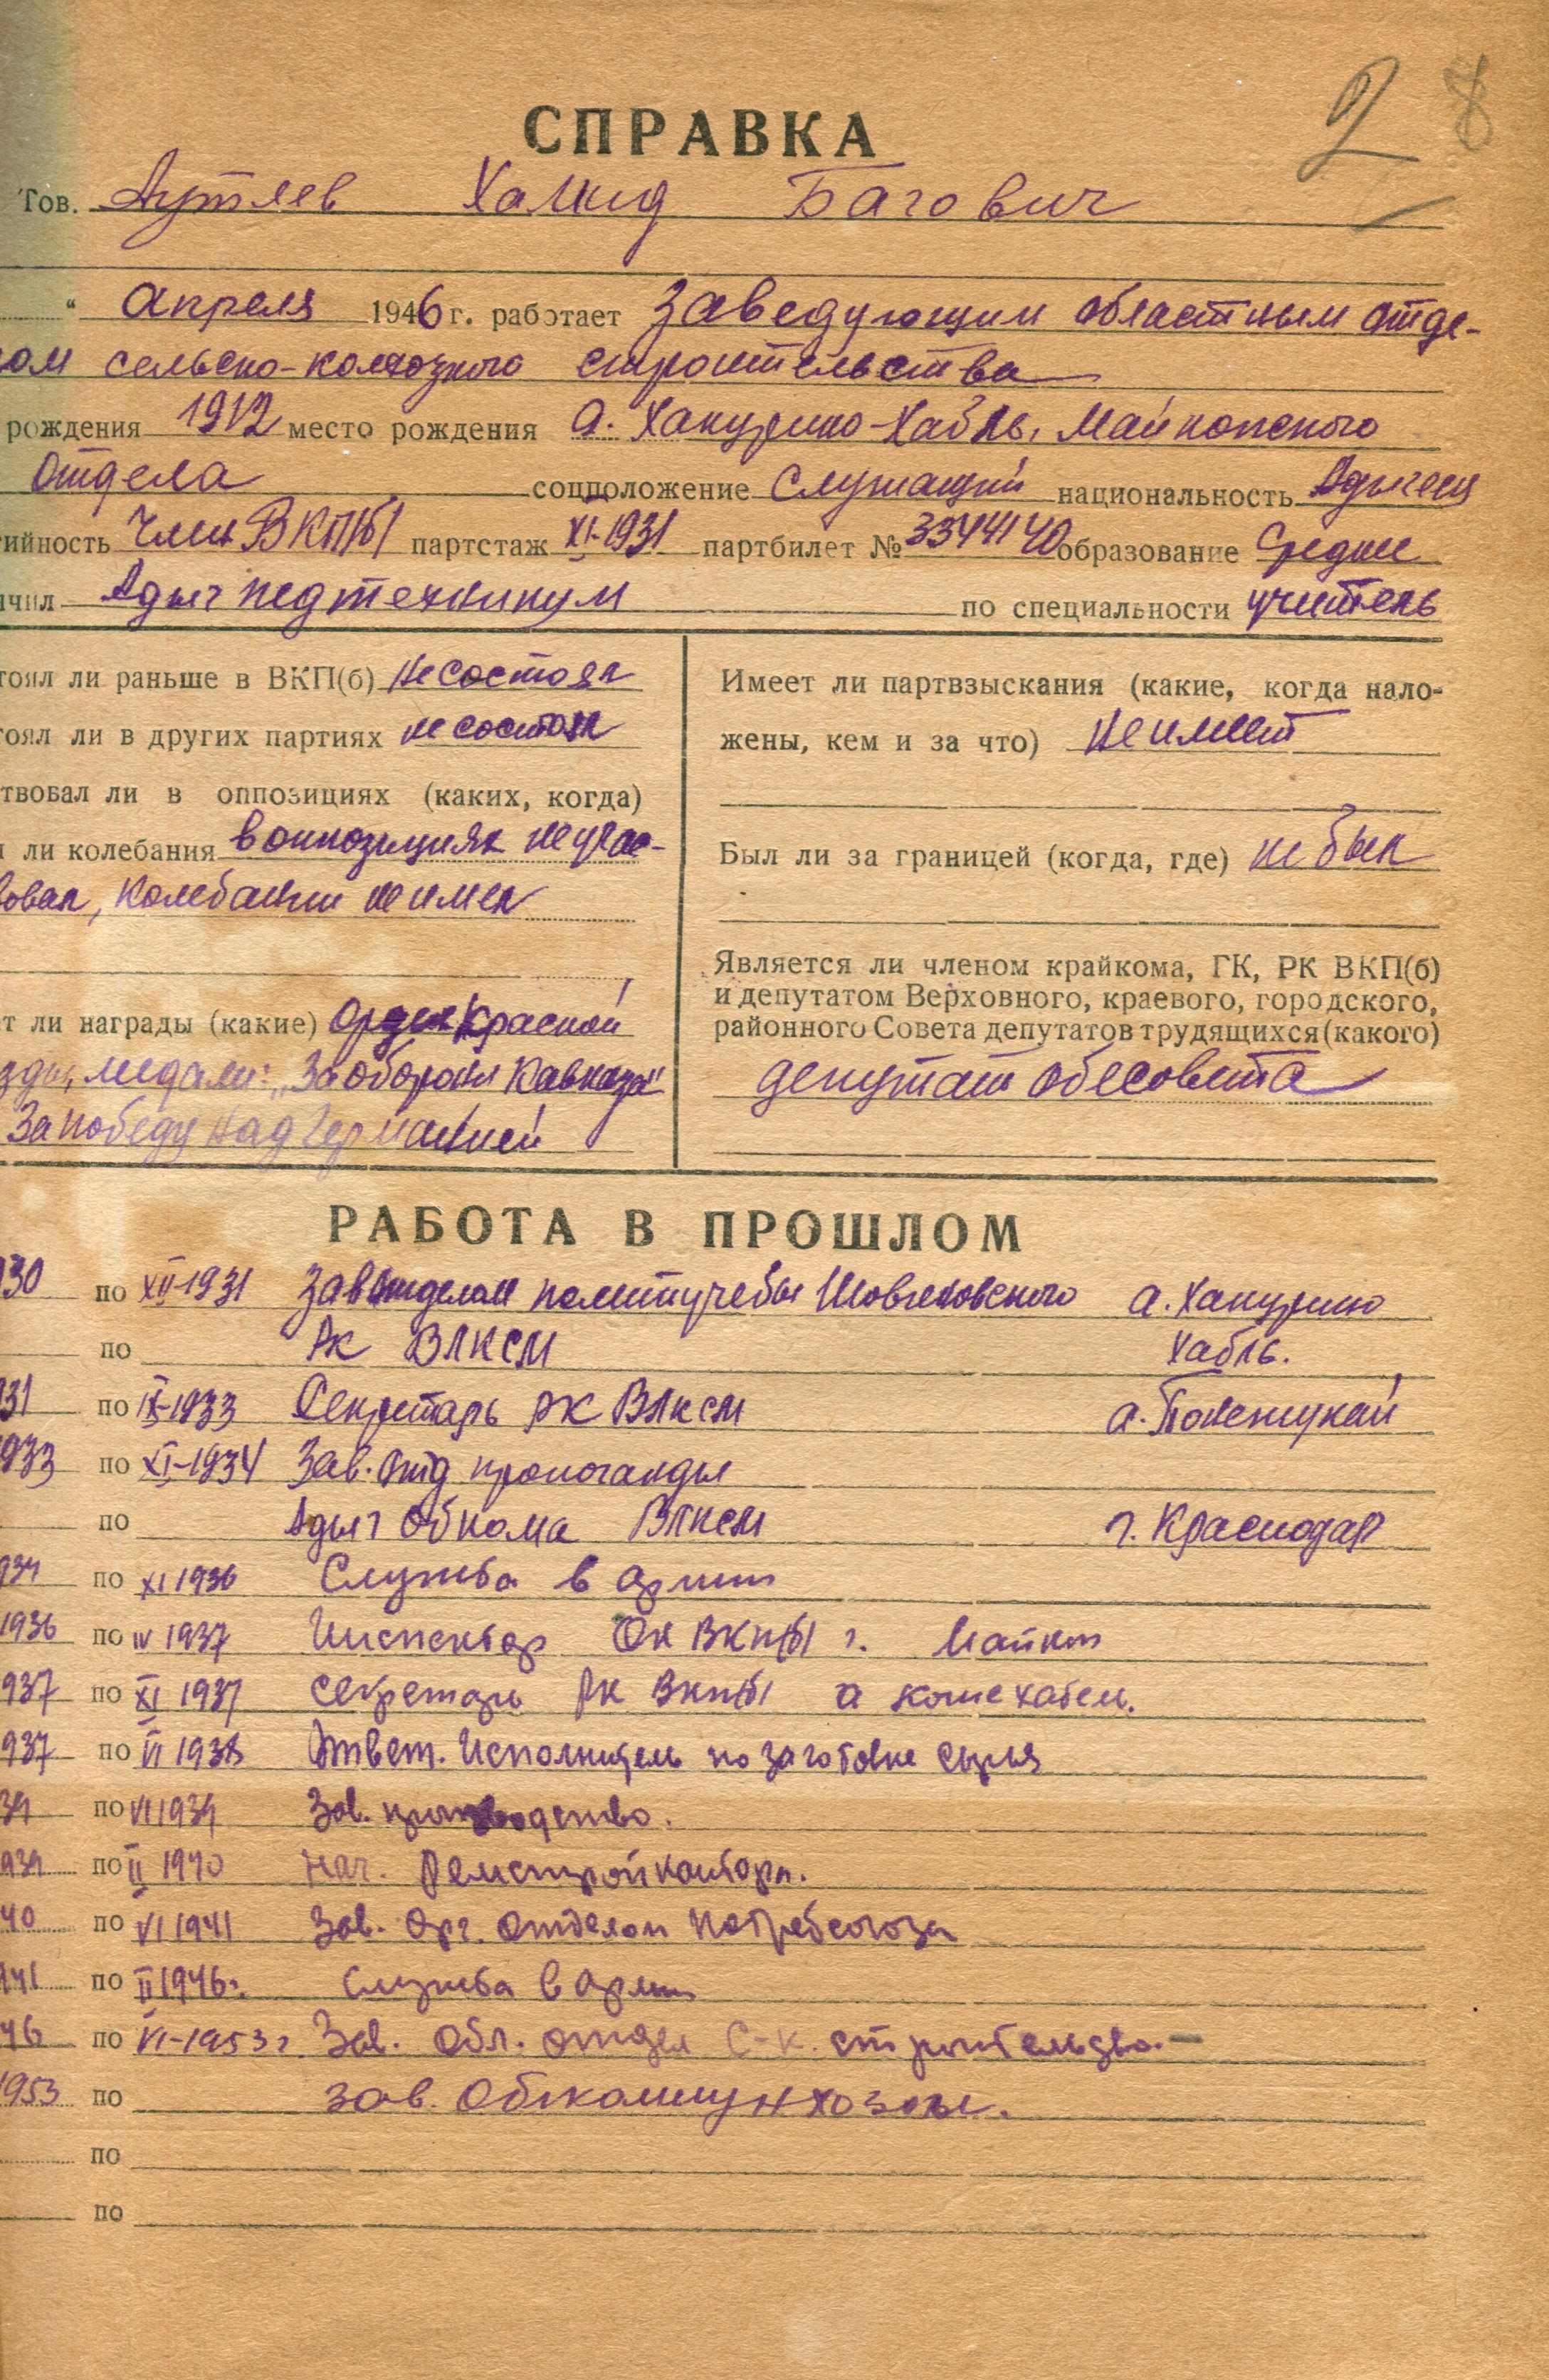 2 8
СПРАВКА
Тов. Аутлев Халид Багович
" апреля 1946 г. работает Заведующим областным отде-
ом сельско-колхозного строительства
рождения 1912 место рождения а. Хакурино-Хабль, Майкопского
отдела соцположение Служащий национальность Адыгеец
ийность Член ВКП(б) партстаж XI-1931 партбилет № 3344140 образование Среднее
чил Адыг педтехникум по специальности учитель
тоял ли раньше в ВКП(б) не состоял
тоял ли в других партиях не состоял
твовал ли в оппозициях (каких, когда)
ли колебания в оппозициях не учас-
вовал, колебании не имел
т ли награды (какие) Орден Красной
зды, медали: „За оборону Кавказа"
За победу над Германией
Имеет ли партвзыскания (какие, когда нало-
жены, кем и за что) не имеет
Был ли за границей (когда, где) не был
Является ли членом крайкома, ГК, РК ВКП(б)
и депутатом Верховного, краевого, городского,
районного Совета депутатов трудящихся (какого)
депутат облсовета
РАБОТА В ПРОШЛОМ
930 по XII-1931 Зав отделом политучебы Шовгеновского а. Хакурино
по РК ВЛКСМ Хабль.
931 по IX-1933 Секретарь РК ВЛКСМ а. Понежукай
1933 по XI-1934 Зав. Отд пропоганды
по Адыг Обкома ВЛКСМ г. Краснодар
934 по XI 1936 Служба в армии
1936 по IV 1937 Инспектор ОК ВКП(б) г. Майкоп
937 по XI 1937 секретарь РК ВКП(б) а Кошехабль.
937 по VI 1938 Ответ. Исполнитель по заготовке сырья
39 по VI 1939 Зав. производство.
939 по II 1940 Нач. Ремстройконторы.
40 по VI 1941 Зав. Орг. отделом Потребсоюза
941 по II 1946 г. Служба в армии
46 по VI-1953 г. Зав. Обл. отдел С-К. строительства.
1953 по зав. Облкоммунхозом.
по
по